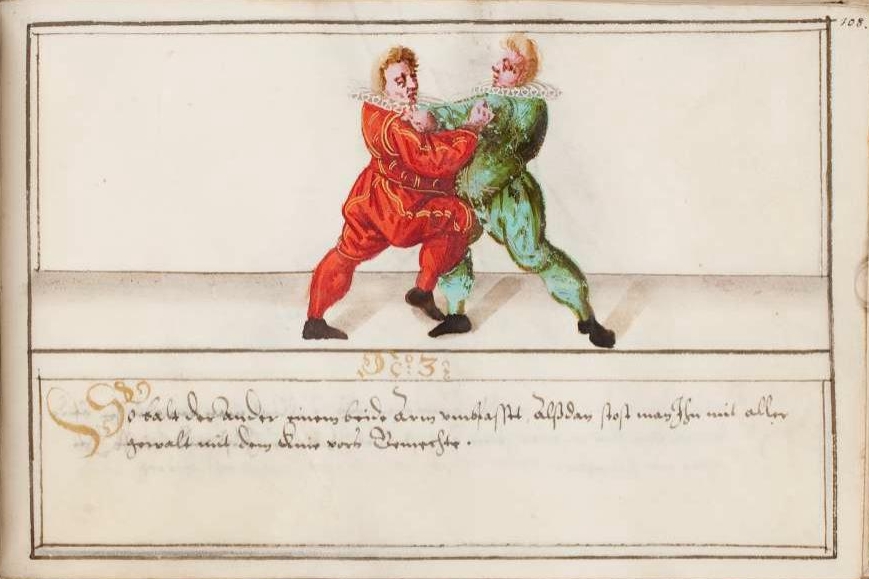 108.
No: 3:
So balt der Ander einem beide Arm umbfasset, Alßdan stost man Ihn mit aller
gewalt mit dem Knie vors Gemechte.